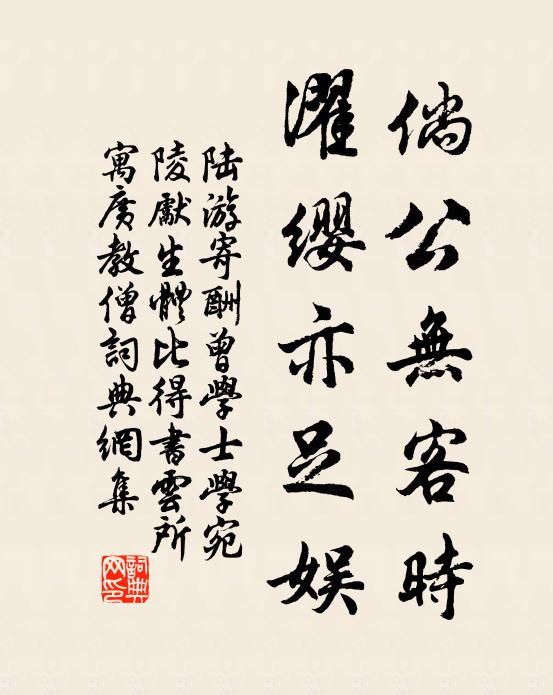 倘公無客時
濯纓亦足娱
陆游寄酬曾學士學宛
陵獻生體比得書雲所
寓廣教僧詞典網集
詞典
网印